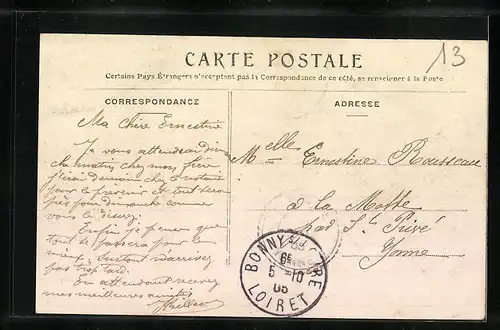 13
CARTE POSTALE
Certains Pays Étrangers n'acceptant pas la Correspondance de ce côté, se renseigner à la Poste
CORRESPONDANCE
Ma Chère Ernestine
Je vous attendrai
che matin, chez mon
j'irai demain chez
pour le prévenir et tout sera
près pour dimanche comme
vous le disez.
Enfin je pense que
tout se passera pour le
mieux, surtout n'arrivez
pas trop tard.
En attendant recevez
mes meilleures amitiés
ADRESSE
Melle Ernestine Rousseau
à la Motte
par St Privé
Yonne
BONNY S. LOIRE
5 -10
05
LOIRET